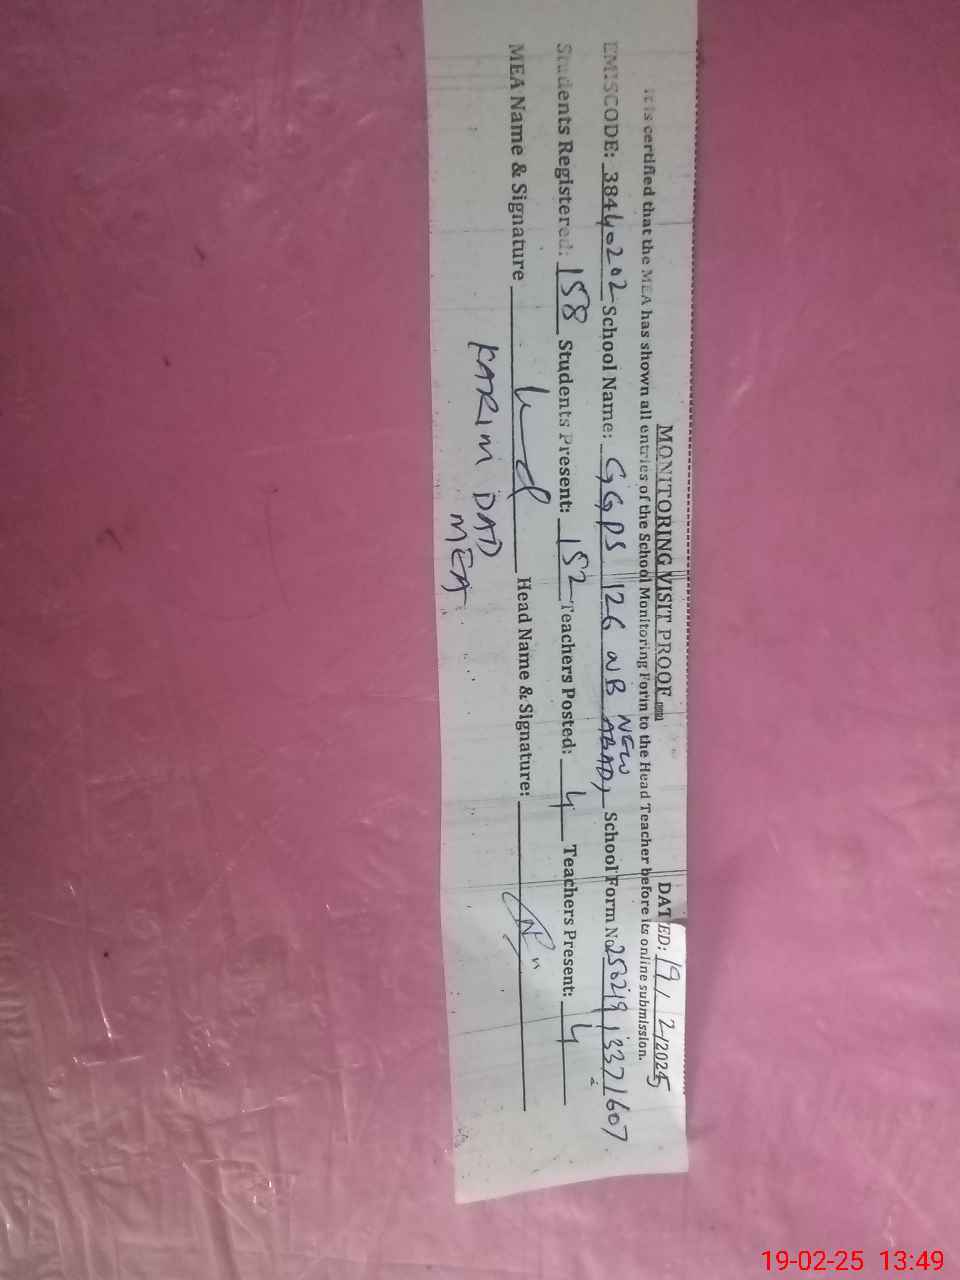 MONITORING VISIT PROOF DATED: 19/2/2025
It is certified that the MEA has shown all entries of the School Monitoring Form to the Head Teacher before its online submission.
EMISCODE: 38440202 School Name: GGPS 126 NB NEW ABADI School Form No 25021913371607
Students Registered: 158 Students Present: 152 Teachers Posted: 4 Teachers Present: 4
MEA Name & Signature Head Name & Signature:
KARIM DAD
MEA
19-02-25 13:49